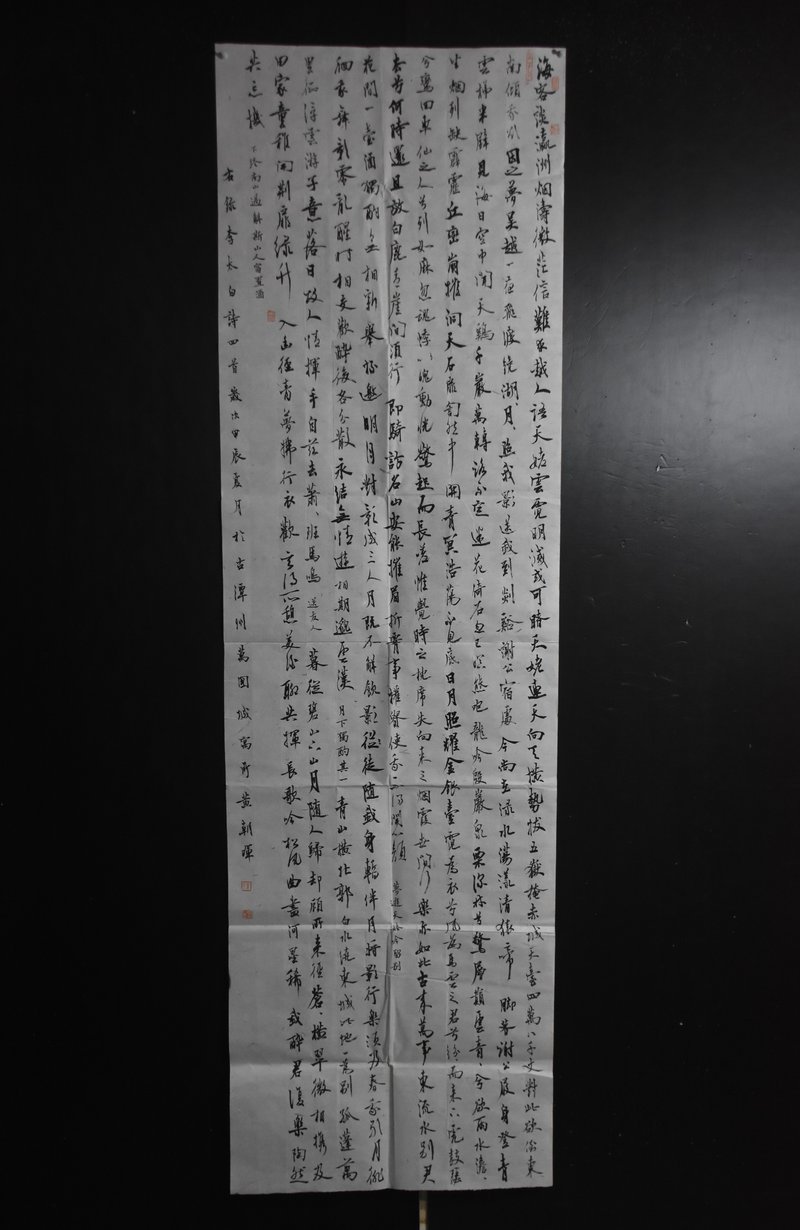 海客談瀛洲烟濤微茫信難求越人語天姥雲霓明滅或可睹天姥連天向天橫勢拔五嶽掩赤城天臺四萬八千丈對此欲倒東
南傾我欲因之夢吴越一夜飛渡鏡湖月、照我影送我到剡谿謝公宿處今尚在渌水蕩漾清猿啼脚著謝公屐身登青
雲梯半壁見海日空中聞天鷄千巖萬轉路不定迷花倚石忽已暝熊咆龍吟殷巖泉栗深林兮驚層巔雲青、兮欲雨水澹、
生烟列缺霹靂丘巒崩摧洞天石扉訇然中開青冥浩蕩不見底日月照耀金銀臺霓為衣兮風為馬雲之君兮紛而來下虎鼓瑟
兮鸞回車仙之人兮列如麻忽魂悸以魄動怳驚起而長嗟惟覺時之枕席失向來之烟霞世間行樂亦如此古來萬事東流水別君
去兮何時還且放白鹿青崖間須行即騎訪名山安能摧眉折腰事權貴使我不得開心顔 夢遊天姥吟留別
花間一壺酒獨酌無相親舉杯邀明月對影成三人月既不解飲影徒隨我身暫伴月將影行樂須及春我歌月徘
徊我舞影零亂醒時相交歡醉後各分散永結無情遊相期邈雲漢 月下獨酌其一 青山橫北郭白水遶東城此地一為別孤蓬萬
里征浮雲游子意落日故人情揮手自茲去蕭、班馬鳴 送友人 暮從碧山下山月隨人歸却顧所來徑蒼、橫翠微相攜及
田家童稚開荆扉綠竹入幽徑青蘿拂行衣歡言得所憩美酒聊共揮長歌吟松風曲盡河星稀我醉君復樂陶然
共忘機 下終南山過斛斯山人宿置酒
右錄李太白詩四首歲次甲辰夏月於古潭州萬國城寓所黄朝暉